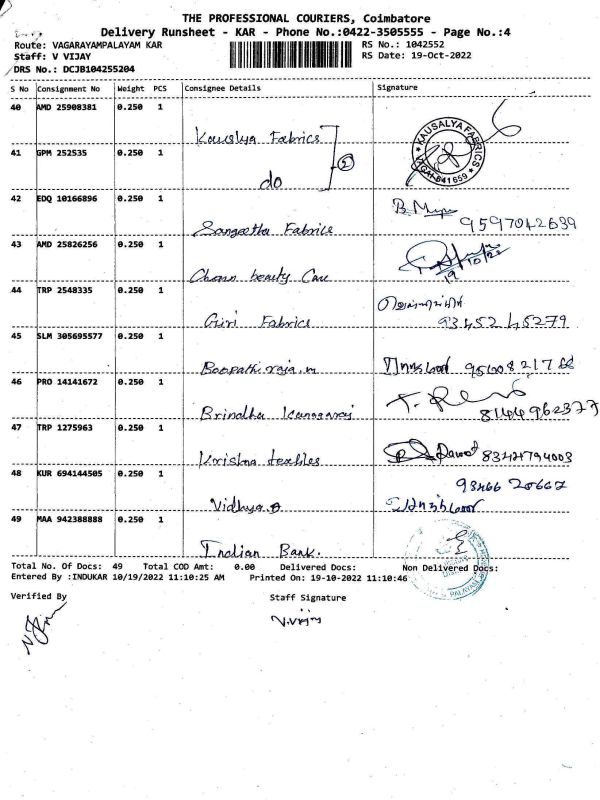 THE PROFESSIONAL COURIERS, Coimbatore
Delivery Runsheet - KAR - Phone No.:0422-3505555 - Page No.:4
Route: VAGARAYAMPALAYAM KAR
RS No.: 1042552
Staff: V VIJAY
RS Date: 19-Oct-2022
DRS No.: DCJB104255204
S No Consignment No Weight PCS Consignee Details Signature
40 AMD 25908381 0.250 1
Kauslya Fabrics
KAUSALYA FABRICS
41 GPM 252535 0.250 1
do
2
641659
42 EDQ 10166896 0.250 1
Sangeetha Fabrics
9597042639
43 AMD 25826256 0.250 1
Charm beauty Care
19/10/22
44 TRP 2548335 0.250 1
Giri Fabrics
9345245279
45 SLM 305695577 0.250 1
Boopathi raja.m
46 PRO 14141672 0.250 1
Brindha Kanagaraj
8144962377
47 TRP 1275963 0.250 1
Krishna textiles
48 KUR 694144505 0.250 1
Vidhya
93466 20667
49 MAA 942388888 0.250 1
Indian Bank.
Total No. Of Docs: 49 Total COD Amt: 0.00 Delivered Docs: Non Delivered Docs:
Entered By :INDUKAR 10/19/2022 11:10:25 AM Printed On: 19-10-2022 11:10:46
Verified By Staff Signature
V.Vijay